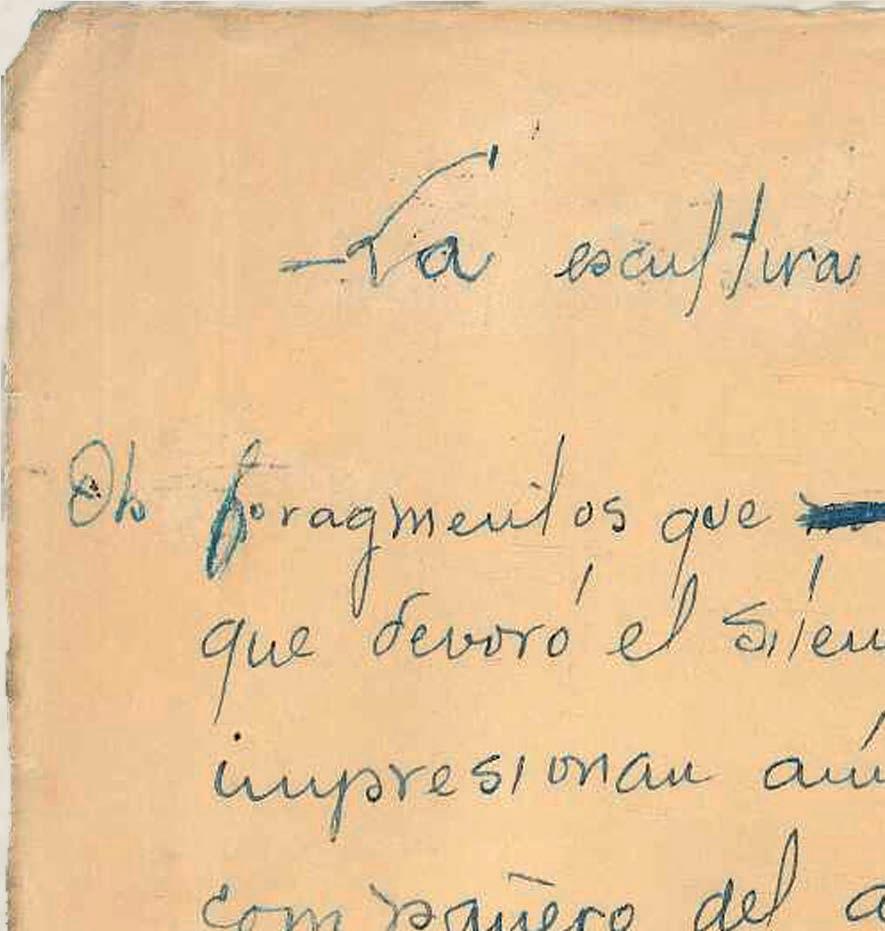 La escultura
Oh fragmentos que
que devoró el
impresionan aún
compañero del